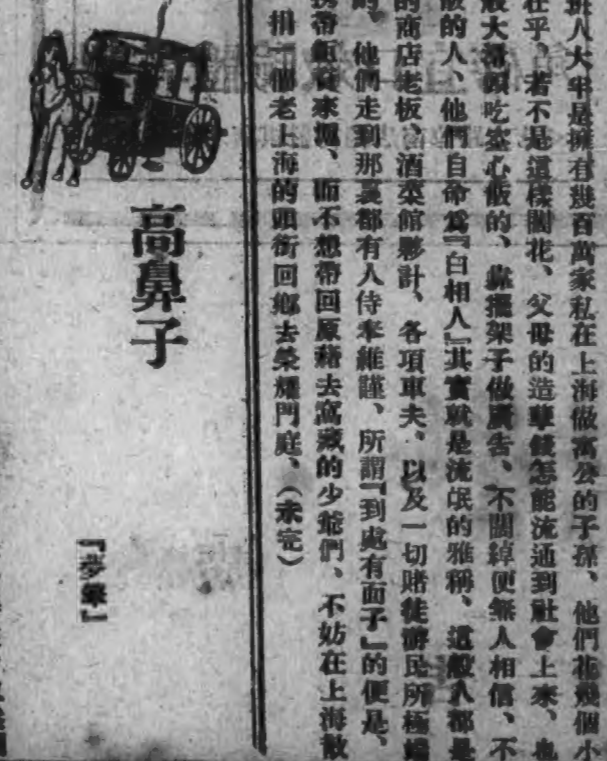 班人大半是擁有幾百萬家私在上海做寓公的子孫、他們花幾個小
在乎、若不是這樣闊花、父母的造孽錢怎能流通到社會上來、也
般大滑頭吃空心飯的、靠擺架子做廣告、不闊綽便無人相信、不
般的人、他們自命爲『白相人』其實就是流氓的雅稱、這般人都是
的商店老板、酒菜館夥計、各項車夫、以及一切賭徒游民所極
的、他們走到那裏都有人侍奉維謹、所謂『到處有面子』的便是、
携帶飯食來滬、而不想帶回原藉去窩藏的少爺們、不妨在上海散
捐『個老上海的頭銜回鄉去榮耀門庭、（未完）
高鼻子
『夢